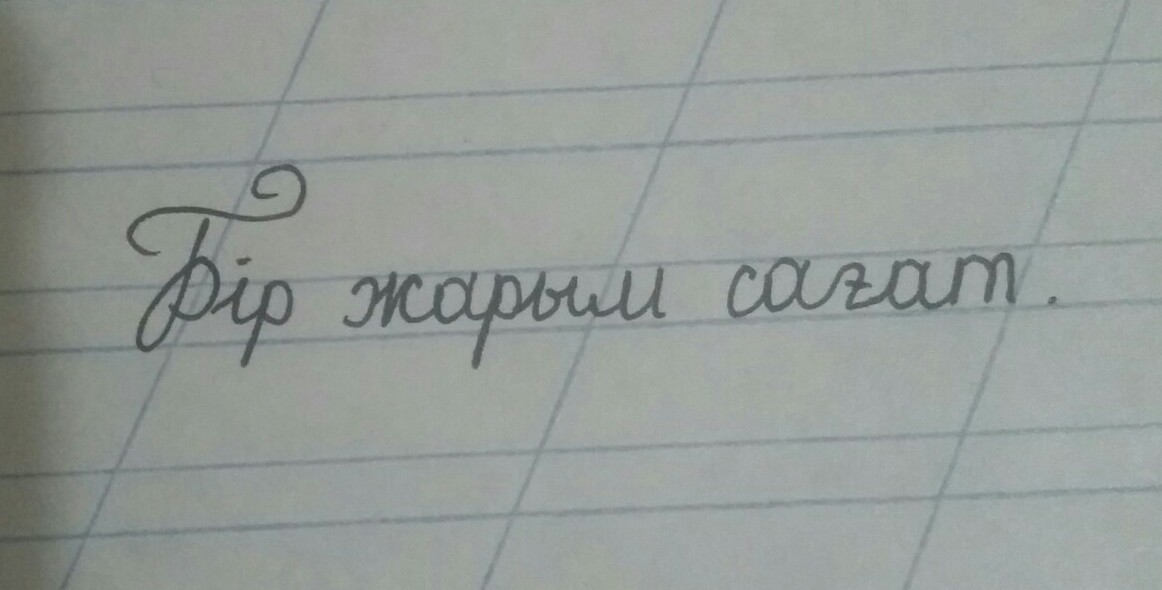 Бір жарым сағат.